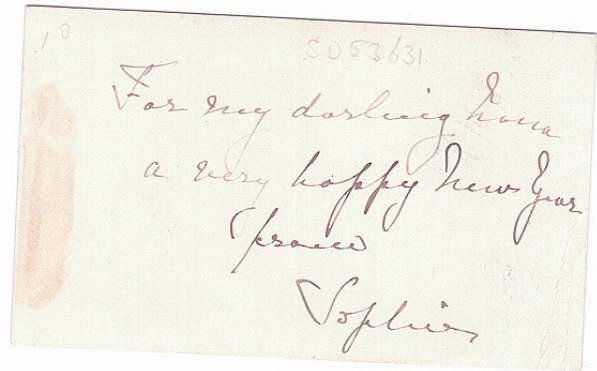 SD53631
For my darling Nona
a very happy New Year
from
Sophie